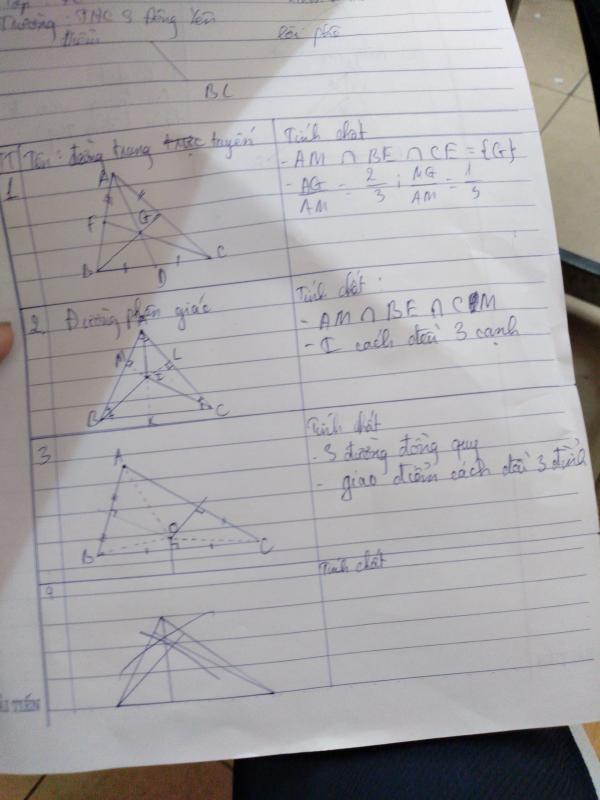 Trường: THCS Đông Yên
điểm
lời phê
BC
TT Tên: đường trung tuyến
Tính chất
1
- AM ∩ BE ∩ CF = {G}
- AG/AM = 2/3 ; MG/AM = 1/3
A
F
G
B
D
C
2. Đường phân giác
Tính chất :
- AM ∩ BE ∩ CM
- I cách đều 3 cạnh
A
L
I
B
K
C
3
Tính chất
- 3 đường đồng quy
- giao điểm cách đều 3 đỉnh
A
O
B
C
4
Tính chất